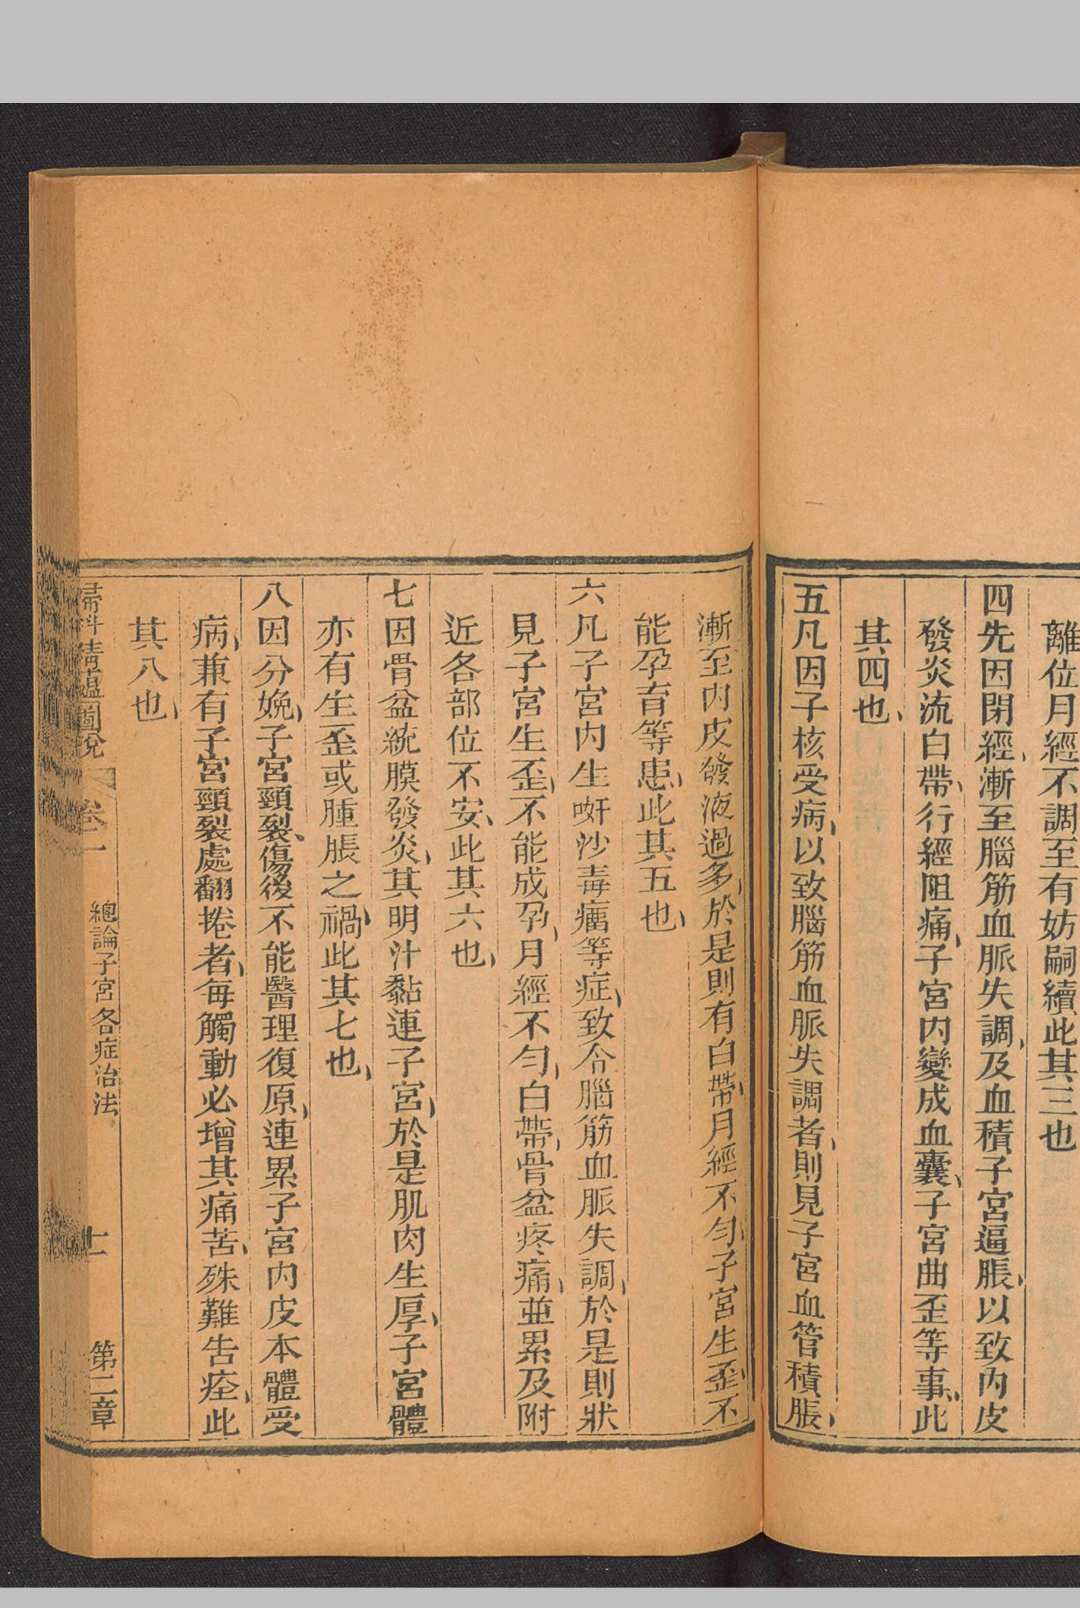 離位月經不調至有妨嗣續此其三也
四先因閉經漸至腦筋血脈失調及血積子宮逼脹以致內皮
發炎流白帶行經阻痛子宮內變成血囊子宮曲歪等事此
其四也
五凡因子核受病以致腦筋血脈失調者則見子宮血管積脹
漸至內皮發液過多於是則有白帶月經不勻子宮生歪不
能孕育等患此其五也
六凡子宮內生𠵇沙毒癘等症致令腦筋血脈失調於是則狀
見子宮生歪不能成孕月經不勻白帶骨盆疼痛並累及附
近各部位不安此其六也
七因骨盆統膜發炎其明汁黏連子宮於是肌肉生厚子宮體
亦有生歪或腫脹之禍此其七也
八因分娩子宮頸裂傷後不能醫理復原連累子宮內皮本體受
病兼有子宮頸裂處翻捲者每觸動必增其痛苦殊難告痊此
其八也
婦科精蘊圖說 卷二 總論子宮各症治法 十一 第二章